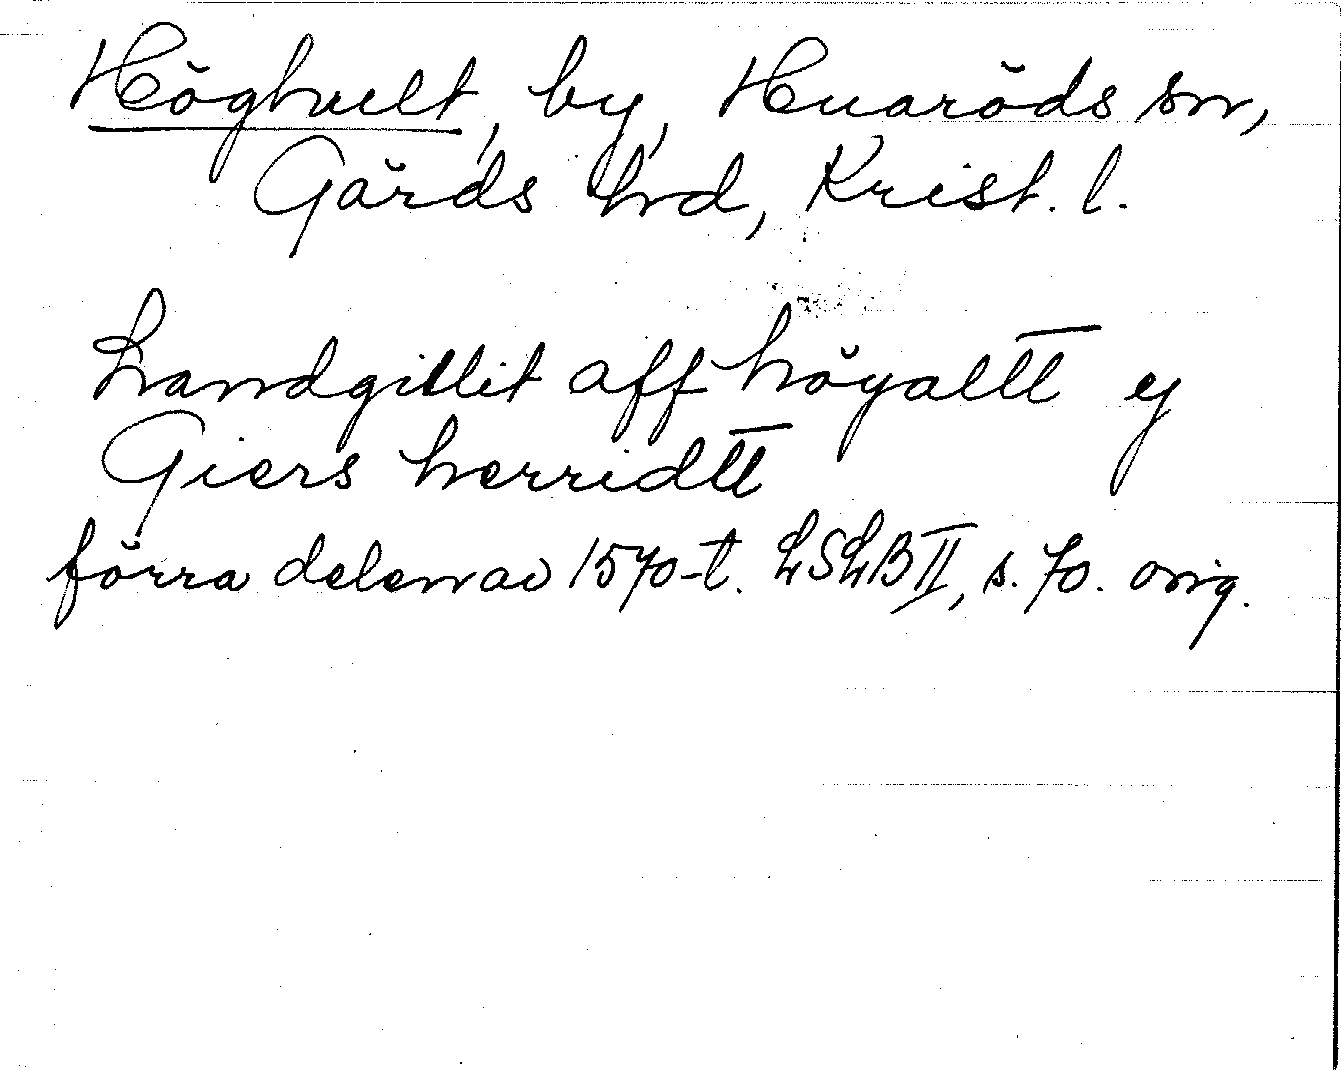 Höghult, by, Huaröds sn,
Gärds hd, Krist. l.
Landgillit aff höyalltt ey
Giers herridtt
förra delen av 1570-t. LSLB II, s. 70. orig.